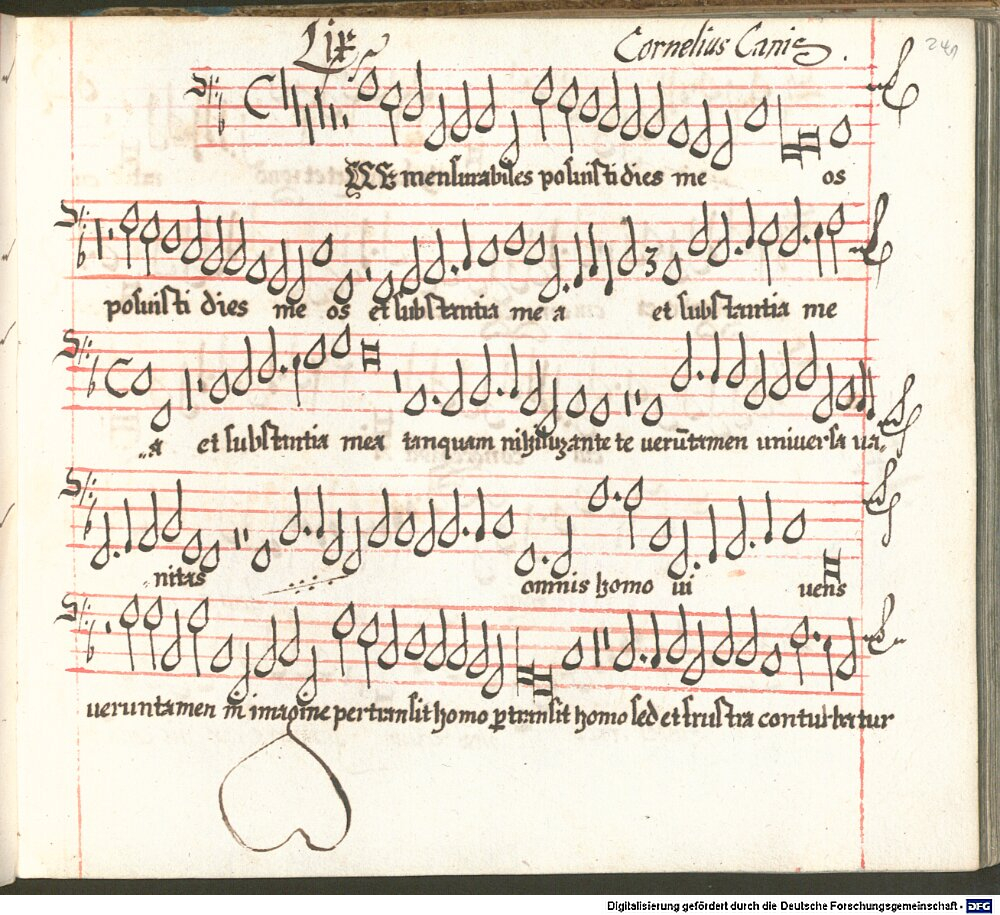 Lix Cornelius Canis . 241
Ecce mensurabiles posuisti dies me os
posuisti dies me os et substantia me a et substantia me
a et substantia mea tanquam nihilu ante te verūtamen universa va
nitas omnis homo vi vens
veruntamen in imagine pertransit homo ꝑtransit homo sed et frustra conturbatur
Digitalisierung gefördert durch die Deutsche Forschungsgemeinschaft - DFG